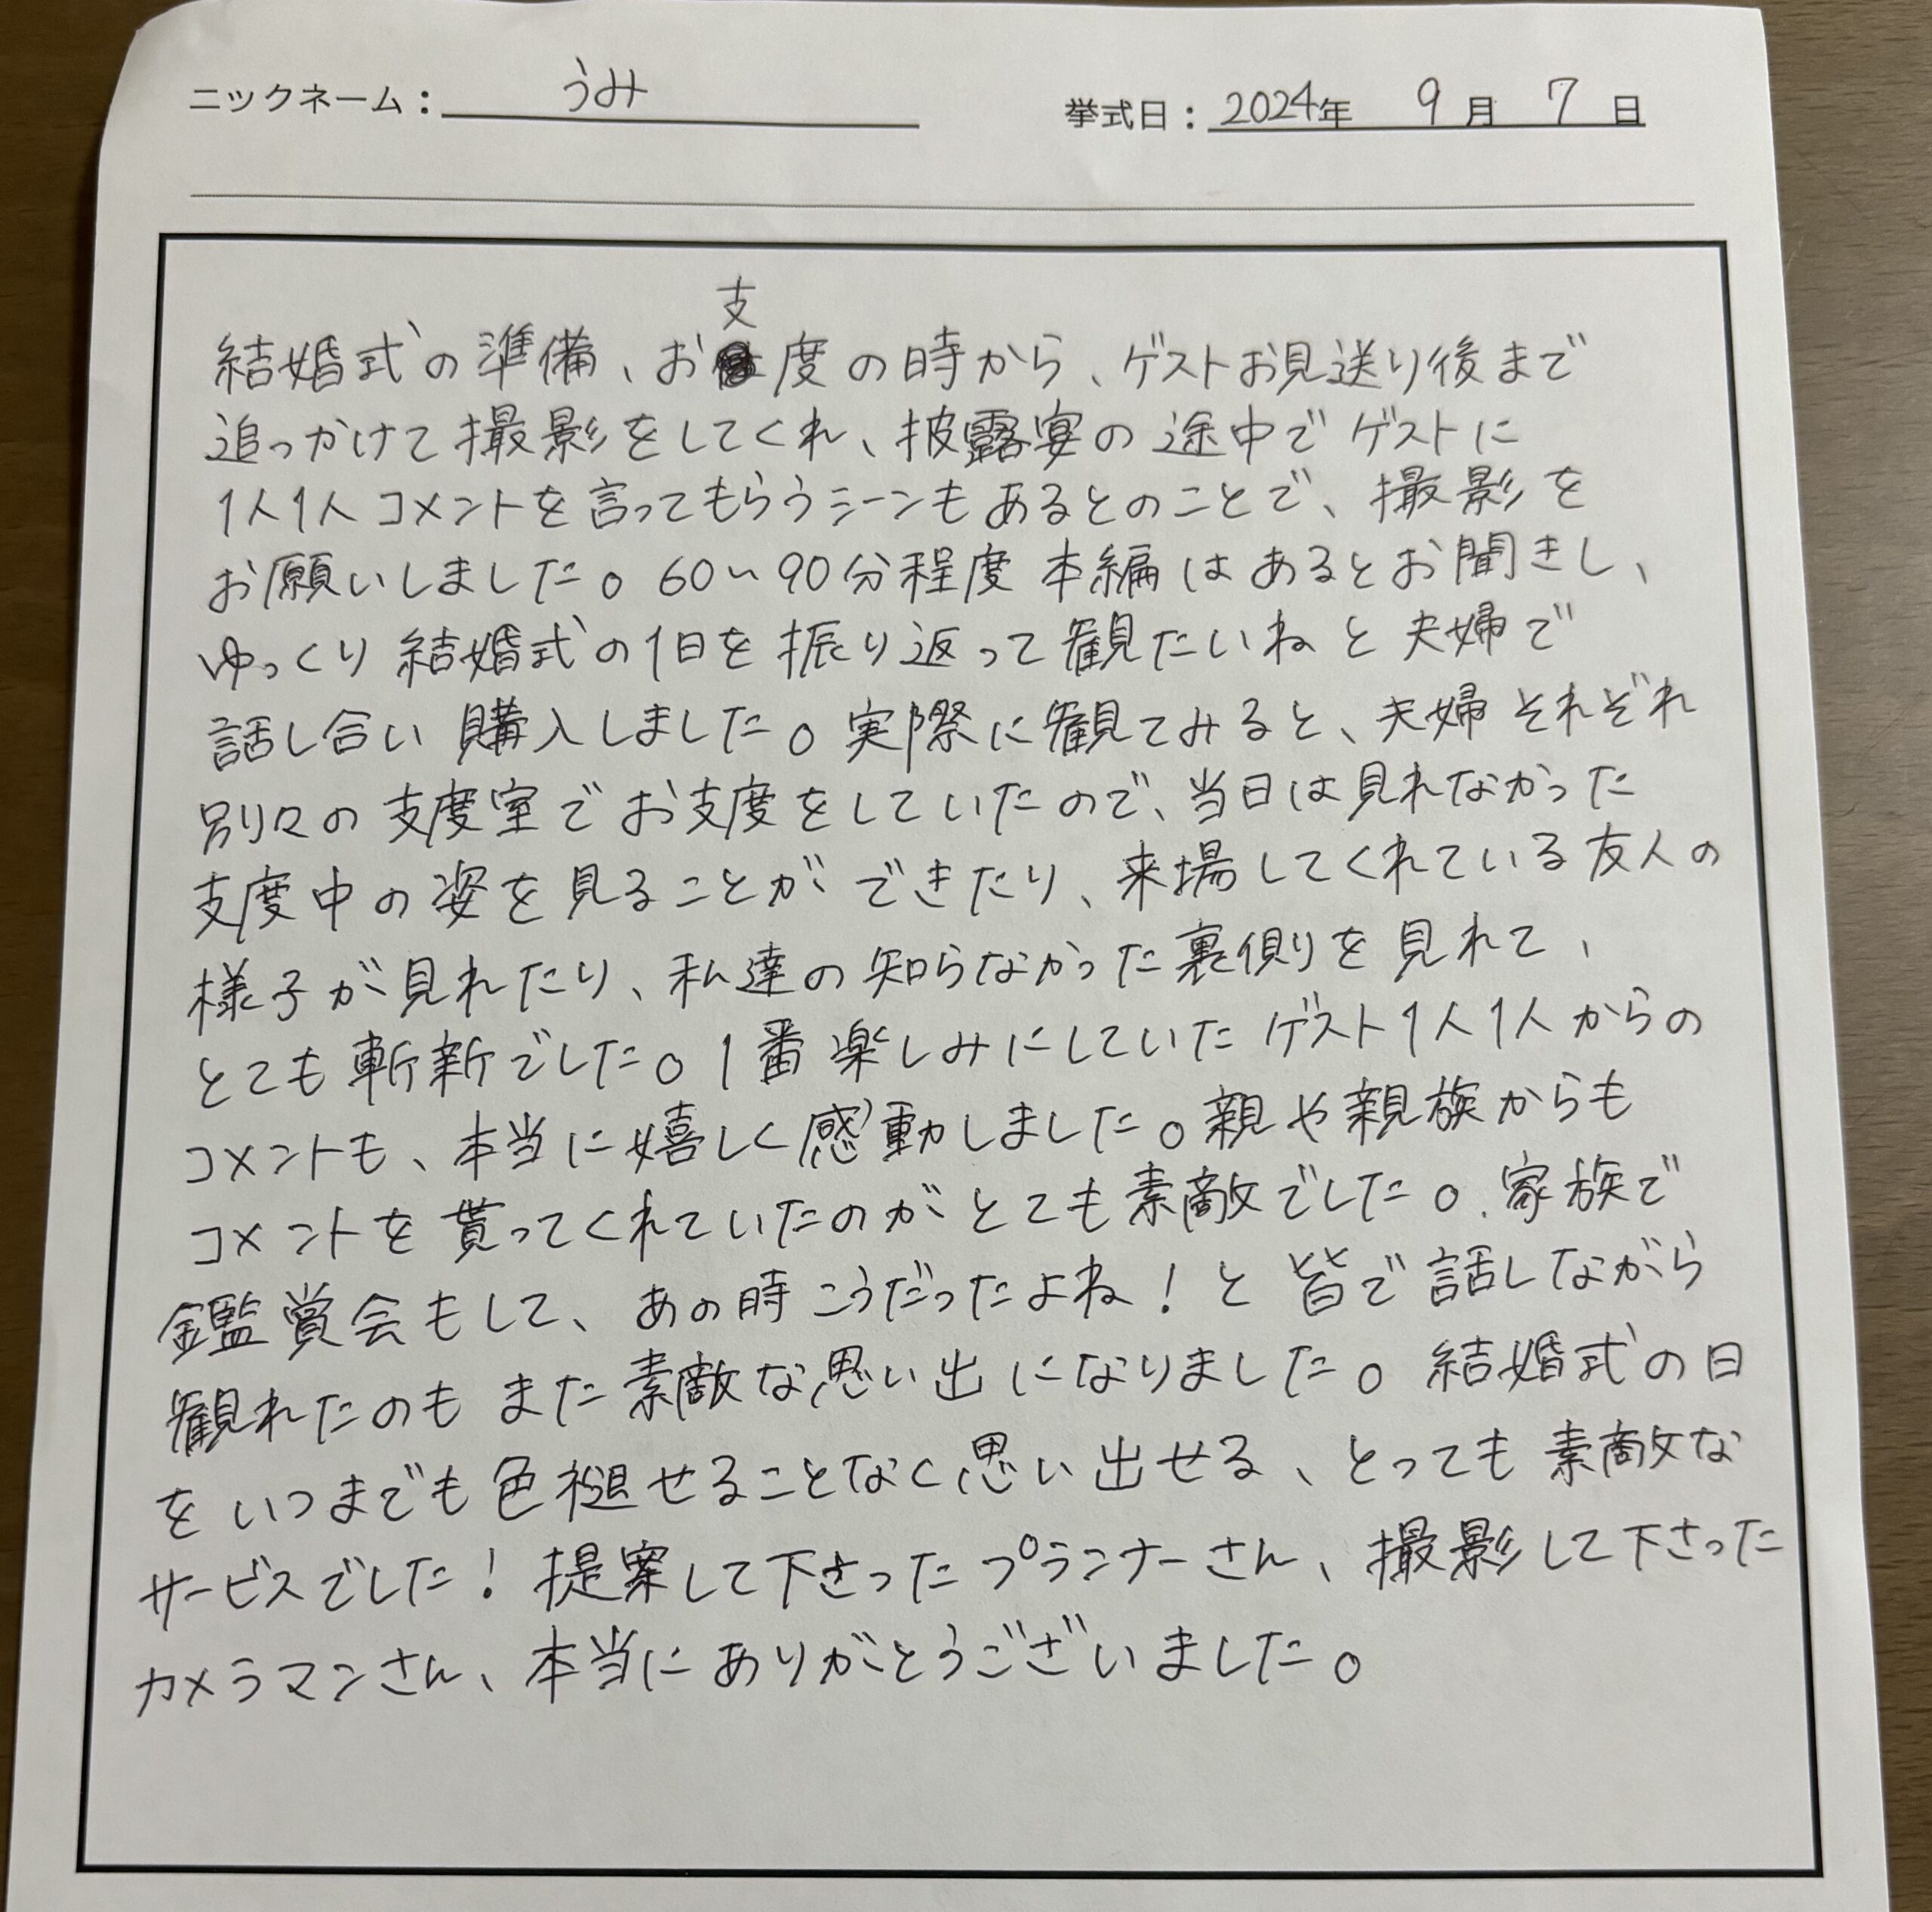 ニックネーム：うみ 挙式日：2024年 9月 7日
結婚式の準備、お支度の時から、ゲストお見送り後まで
追っかけて撮影をしてくれ、披露宴の途中でゲストに
1人1人コメントを言ってもらうシーンもあるとのことで、撮影を
お願いしました。60〜90分程度本編はあるとお聞きし、
ゆっくり結婚式の1日を振り返って観たいねと夫婦で
話し合い購入しました。実際に観てみると、夫婦それぞれ
別々の支度室でお支度をしていたので、当日は見れなかった
支度中の姿を見ることができたり、来場してくれている友人の
様子が見れたり、私達の知らなかった裏側を見れて、
とても斬新でした。1番楽しみにしていたゲスト1人1人からの
コメントも、本当に嬉しく感動しました。親や親族からも
コメントを貰ってくれていたのがとても素敵でした。家族で
鑑賞会もして、あの時こうだったよね！と皆で話しながら
観れたのもまた素敵な思い出になりました。結婚式の日
をいつまでも色褪せることなく思い出せる、とっても素敵な
サービスでした！提案して下さったプランナーさん、撮影して下さった
カメラマンさん、本当にありがとうございました。